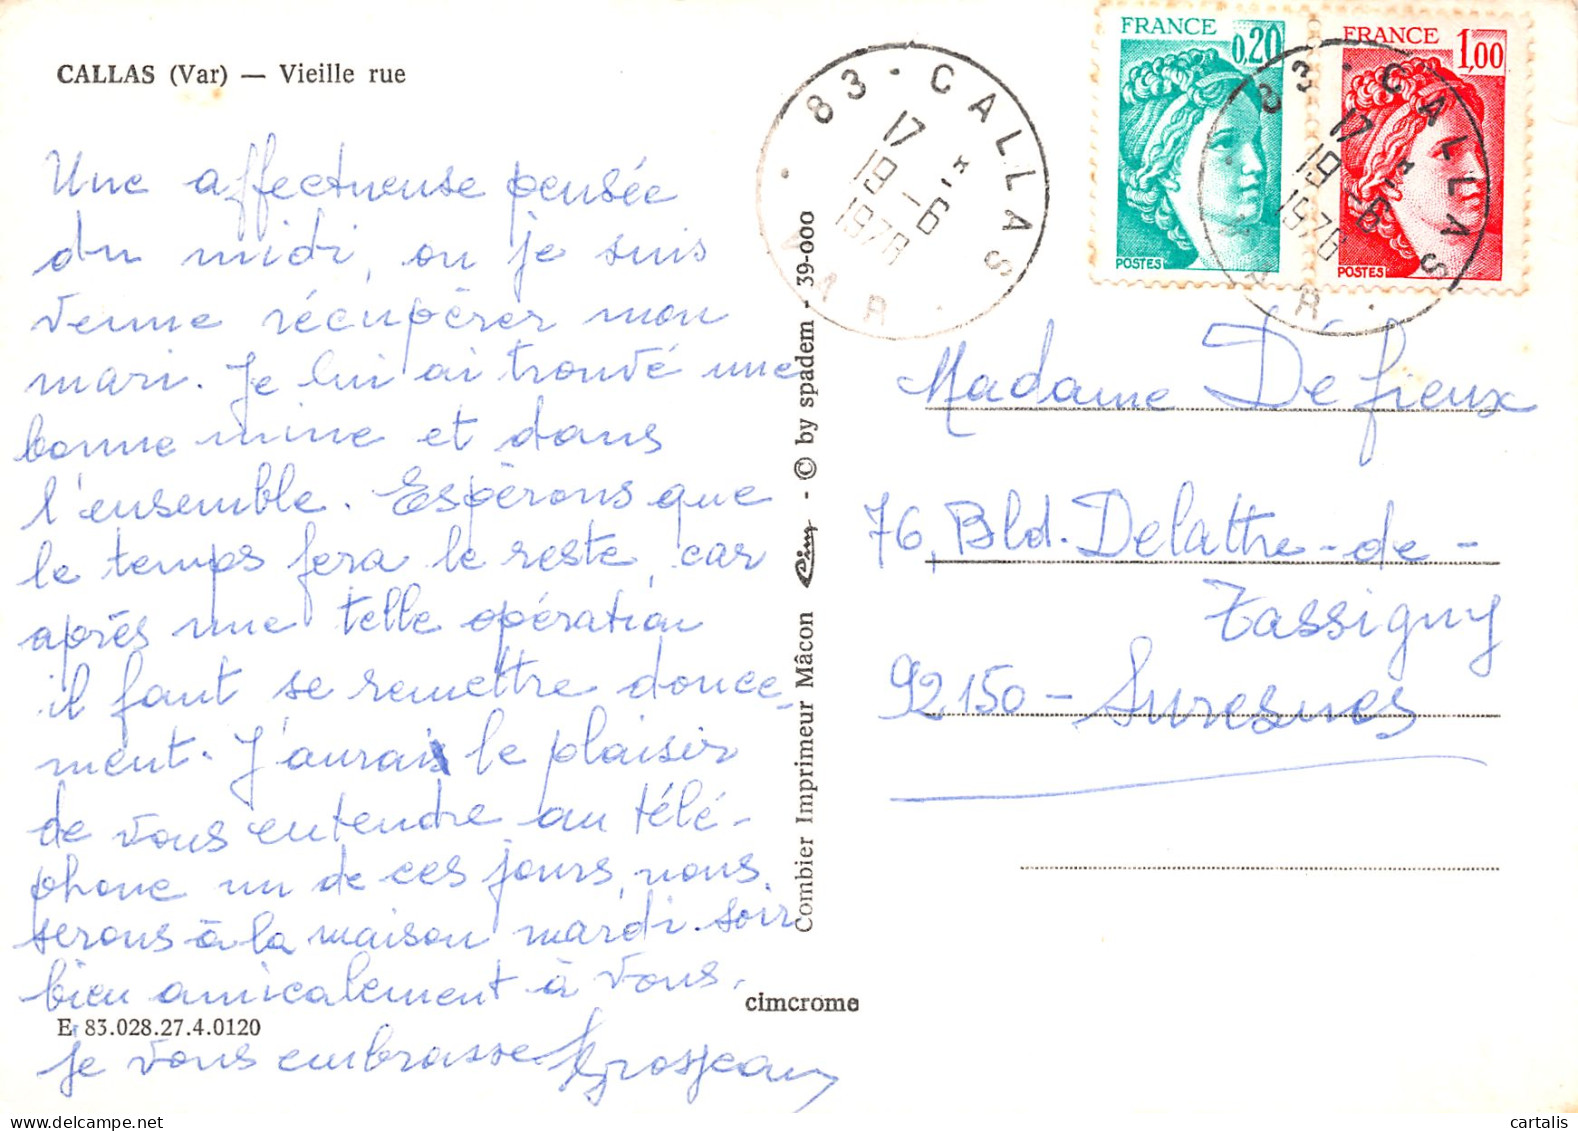 CALLAS (Var) — Vieille rue
Une affectueuse pensée
du midi, ou je suis
venue récupérer mon
mari. Je lui ai trouvé une
bonne mine et dans
l'ensemble. Espérons que
le temps fera le reste, car
après une telle opération
il faut se remettre douce-
ment. J'aurai le plaisir
de vous entendre au télé-
phone un de ces jours, nous
serons à la maison mardi soir
bien amicalement à vous.
je vous embrasse Grosjean
E 83.028.27.4.0120
Combier Imprimeur Mâcon Cim - © by spadem - 39-000
cimcrome
83 - CALLAS
17 H
19 - 6
1978
VAR
FRANCE
0,20
POSTES
FRANCE
1,00
POSTES
83 - CALLAS
17 H
19 - 6
1978
VAR
Madame Défieux
76, Bld. Delattre-de-
Tassigny
92150 - Suresnes
www.cartalis.com